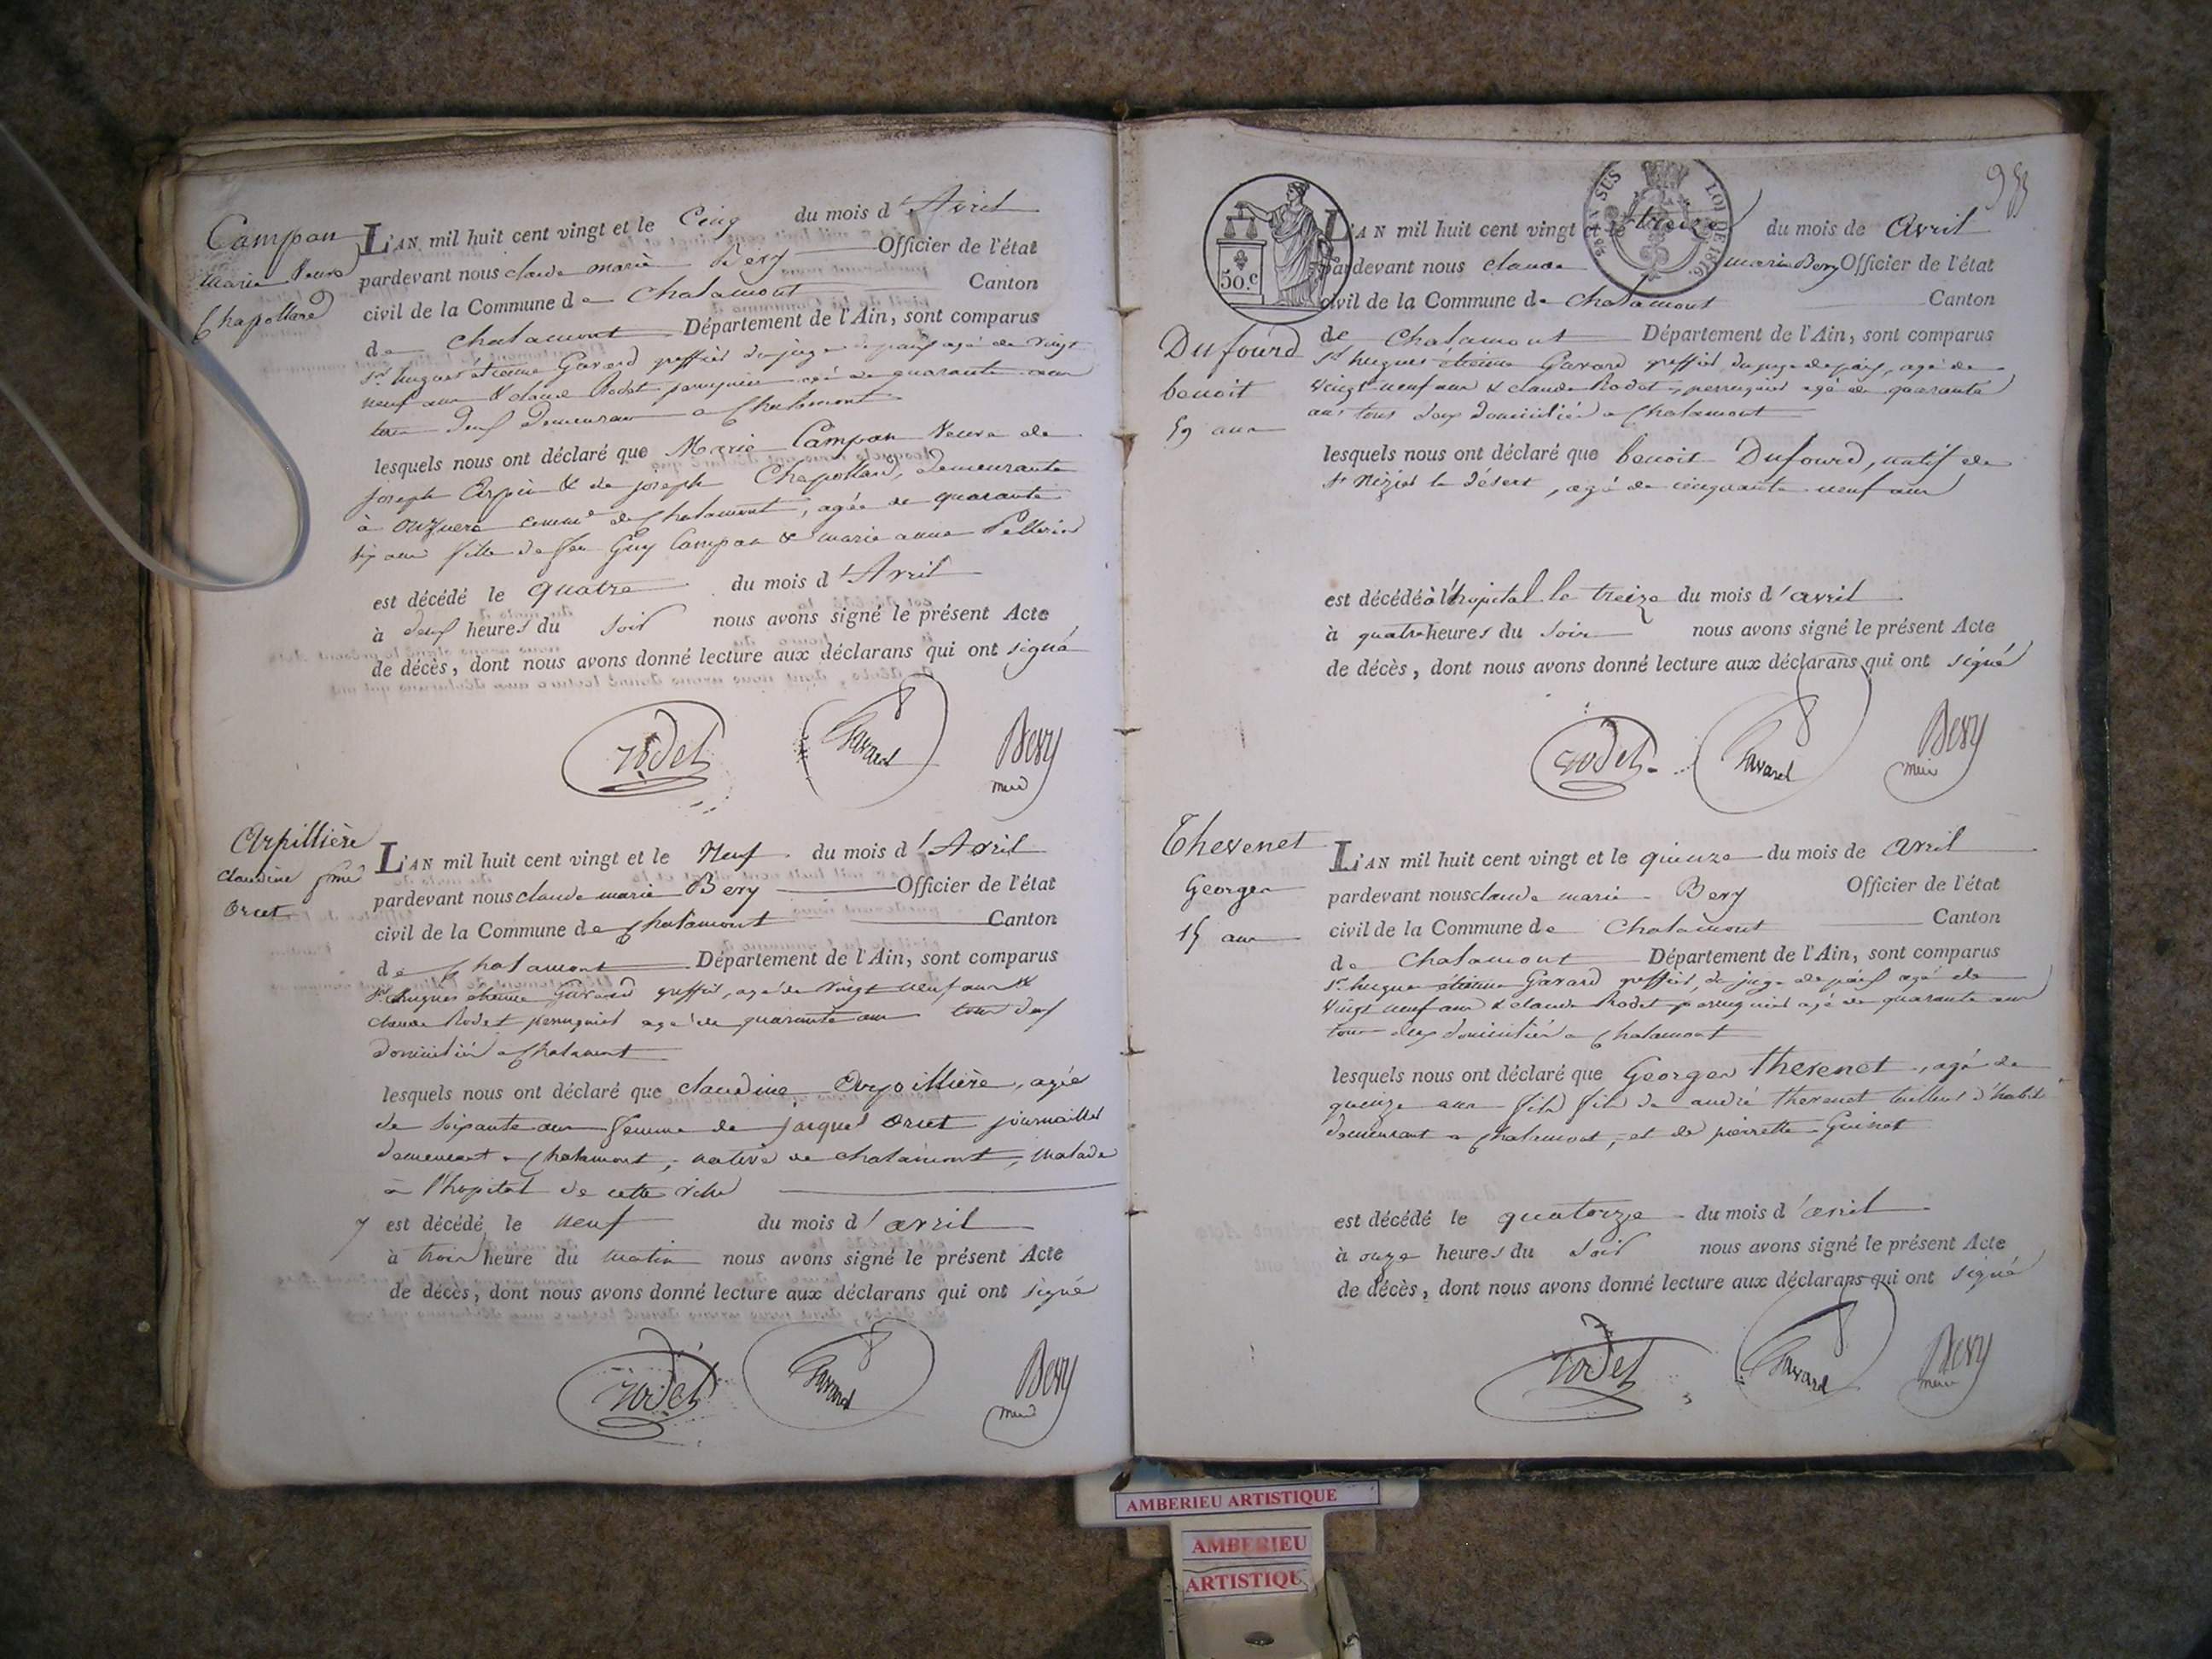 Campan
marie Veuve
Chapolland
L'AN mil huit cent vingt et le Cinq du mois d'Avril
pardevant nous claude marie Bery Officier de l'état
civil de la Commune de Chalamont Canton
de Chalamont Département de l'Ain, sont comparus
Sr hugues étienne Gavard greffier du juge de paix agé de vingt
neuf ans & claude Rodet perruquier agé de quarante ans
tous deux demeurant a Chalamont
lesquels nous ont déclaré que Marie Campan Veuve de
joseph Arpin & de joseph Chapolland, demeurante
à commne de Chalamont, agée de quarante
six ans fille de feu Guy Campan & marie anne Pellerin
est décédé le quatre du mois d'Avril
à deux heures du soir nous avons signé le présent Acte
de décès, dont nous avons donné lecture aux déclarans qui ont signé
rodet Gavard Bery
Arpillière
claudine fme
Orset
L'AN mil huit cent vingt et le Neuf du mois d'Avril
pardevant nous claude marie Bery Officier de l'état
civil de la Commune de Chalamont Canton
de Chalamont Département de l'Ain, sont comparus
Sr hugues etienne Gavard greffier, agé de vingt neuf ans &
claude Rodet perruquier agé de quarante ans tous deux
domiciliés a Chalamont
lesquels nous ont déclaré que claudine Arpillière, agée
de soixante ans femme de jacques Orset journallier
demeurant a Chalamont, native de chalamont, malade
à l'hopital de cette ville
est décédé le neuf du mois d'avril
à trois heure du matin nous avons signé le présent Acte
de décès, dont nous avons donné lecture aux déclarans qui ont signé
rodet Gavard Bery
50 c
LOI DE 1816
L'AN mil huit cent vingt et le treize du mois de Avril
pardevant nous claude marie Bery Officier de l'état
civil de la Commune de Chalamont Canton
de Chalamont Département de l'Ain, sont comparus
Dufourd
benoit
59 ans
Sr hugues étienne Gavard greffier du juge de paix, agé de
vingt neuf ans & claude Rodet, perruquier agé de quarante
ans tous deux domiciliés a Chalamont
lesquels nous ont déclaré que benoit Dufourd, natif de
St Nizier le désert, agé de cinquante neuf ans
est décédé à l'hopital le treize du mois d'avril
à quatre heures du soir nous avons signé le présent Acte
de décès, dont nous avons donné lecture aux déclarans qui ont signé
rodet Gavard Bery
Thevenet
Georges
15 ans
L'AN mil huit cent vingt et le quinze du mois de Avril
pardevant nous claude marie Bery Officier de l'état
civil de la Commune de Chalamont Canton
de Chalamont Département de l'Ain, sont comparus
Sr hugues étienne Gavard greffier, du juge de paix agé de
vingt neuf ans & claude Rodet perruquier agé de quarante ans
tous deux domiciliés a Chalamont
lesquels nous ont déclaré que Georges thevenet, agé de
quinze ans fils fils de andré thevenet tailleur d'habit
demeurant a Chalamont, et de pierrette Guinet
est décédé le quatorze du mois d'avril
à onze heures du soir nous avons signé le présent Acte
de décès, dont nous avons donné lecture aux déclarans qui ont signé
rodet Gavard Bery
AMBERIEU ARTISTIQUE
AMBERIEU
ARTISTIQUE